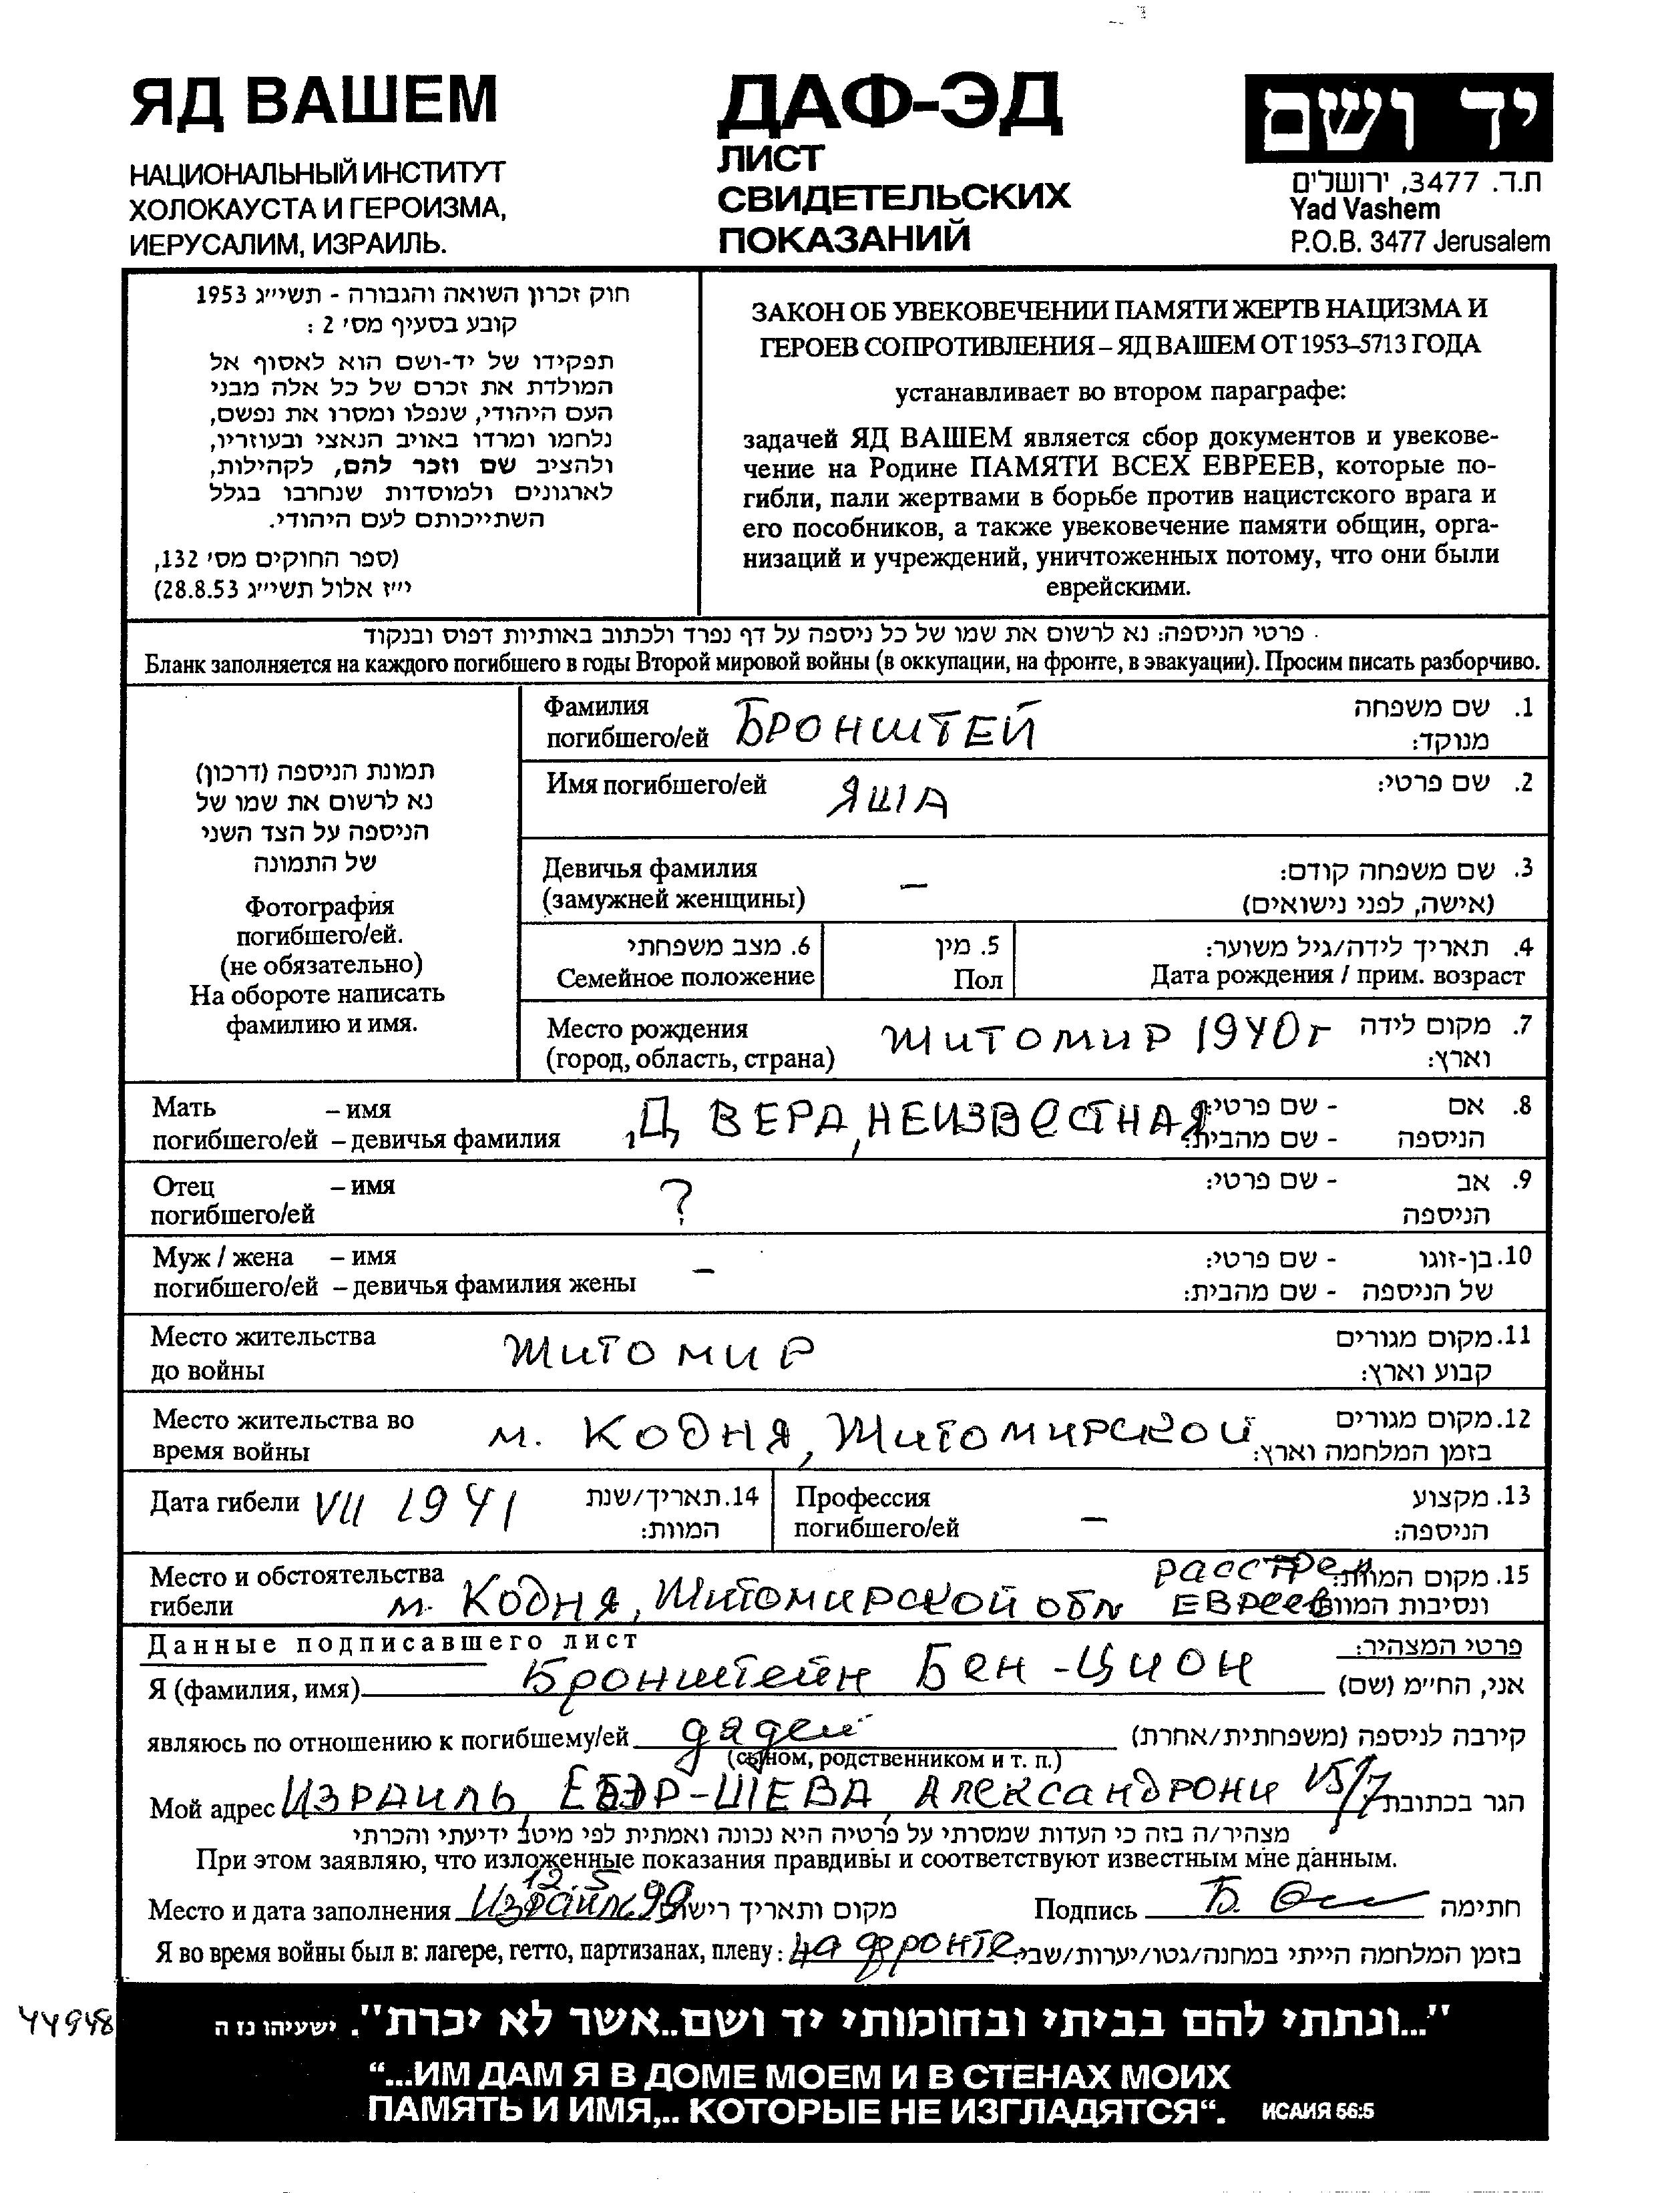 ЯД ВАШЕМ
НАЦИОНАЛЬНЫЙ ИНСТИТУТ
ХОЛОКАУСТА И ГЕРОИЗМА,
ИЕРУСАЛИМ, ИЗРАИЛЬ.
ДАФ-ЭД
ЛИСТ
СВИДЕТЕЛЬСКИХ
ПОКАЗАНИЙ
יד ושם
ת.ד. 3477, ירושלים
Yad Vashem
P.O.B. 3477 Jerusalem
חוק זכרון השואה והגבורה - תשי״ג 1953
קובע בסעיף מס׳ 2 :
תפקידו של יד-ושם הוא לאסוף אל
המולדת את זכרם של כל אלה מבני
העם היהודי, שנפלו ומסרו את נפשם,
נלחמו ומרדו באויב הנאצי ובעוזריו,
ולהציב שם וזכר להם, לקהילות,
לארגונים ולמוסדות שנחרבו בגלל
השתייכותם לעם היהודי.
(ספר החוקים מס׳ 132,
י״ז אלול תשי״ג 28.8.53)
ЗАКОН ОБ УВЕКОВЕЧЕНИИ ПАМЯТИ ЖЕРТВ НАЦИЗМА И
ГЕРОЕВ СОПРОТИВЛЕНИЯ – ЯД ВАШЕМ ОТ 1953–5713 ГОДА
устанавливает во втором параграфе:
задачей ЯД ВАШЕМ является сбор документов и увекове-
чение на Родине ПАМЯТИ ВСЕХ ЕВРЕЕВ, которые по-
гибли, пали жертвами в борьбе против нацистского врага и
его пособников, а также увековечение памяти общин, орга-
низаций и учреждений, уничтоженных потому, что они были
еврейскими.
פרטי הניספה: נא לרשום את שמו של כל ניספה על דף נפרד ולכתוב באותיות דפוס ובנקוד
Бланк заполняется на каждого погибшего в годы Второй мировой войны (в оккупации, на фронте, в эвакуации). Просим писать разборчиво.
תמונת הניספה (דרכון)
נא לרשום את שמו של
הניספה על הצד השני
של התמונה
Фотография
погибшего/ей.
(не обязательно)
На обороте написать
фамилию и имя.
Фамилия БРОНШТЕЙ 1. שם משפחה
погибшего/ей מנוקד:
Имя погибшего/ей ЯША 2. שם פרטי:
Девичья фамилия – 3. שם משפחה קודם:
(замужней женщины) (אישה, לפני נישואים)
6. מצב משפחתי 5. מין 4. תאריך לידה/גיל משוער:
Семейное положение Пол Дата рождения / прим. возраст
Место рождения Житомир 1940г 7. מקום לידה
(город, область, страна) וארץ:
Мать – имя Д ВЕРА, НЕИЗВЕСТНАЯ - שם פרטי: 8. אם
погибшего/ей – девичья фамилия - שם מהבית: הניספה
Отец – имя ? - שם פרטי: 9. אב
погибшего/ей הניספה
Муж / жена – имя – - שם פרטי: 10. בן-זוגו
погибшего/ей – девичья фамилия жены - שם מהבית: של הניספה
Место жительства Житомир 11. מקום מגורים
до войны קבוע וארץ:
Место жительства во м. Кодня, Житомирской 12. מקום מגורים
время войны בזמן המלחמה וארץ:
Дата гибели VII 1941 14. תאריך/שנת
המוות:
Профессия – 13. מקצוע
погибшего/ей הניספה:
Место и обстоятельства расстрел 15. מקום המוות
гибели м. Кодня, Житомирской обл ЕВРЕЕВ ונסיבות המוות
Данные подписавшего лист פרטי המצהיר:
Я (фамилия, имя) Бронштейн Бен-Цион אני, החי״מ (שם)
являюсь по отношению к погибшему/ей дядей קירבה לניספה (משפחתית/אחרת)
(сыном, родственником и т. п.)
Мой адрес ИЗРАИЛЬ, БЭР-ШЕВА, Александрони 15/7 הגר בכתובת
מצהיר/ה בזה כי העדות שמסרתי על פרטיה היא נכונה ואמתית לפי מיטב ידיעתי והכרתי
При этом заявляю, что изложенные показания правдивы и соответствуют известным мне данным.
12.5
Место и дата заполнения Израиль 99 מקום ותאריך רישום Подпись Б. חתימה
Я во время войны был в: лагере, гетто, партизанах, плену: на фронте בזמן המלחמה הייתי במחנה/גטו/יערות/שבי:
44948
"...ונתתי להם בביתי ובחומותי יד ושם..אשר לא יכרת". ישעיהו נז ה
“...ИМ ДАМ Я В ДОМЕ МОЕМ И В СТЕНАХ МОИХ
ПАМЯТЬ И ИМЯ,.. КОТОРЫЕ НЕ ИЗГЛАДЯТСЯ“. ИСАИЯ 56:5